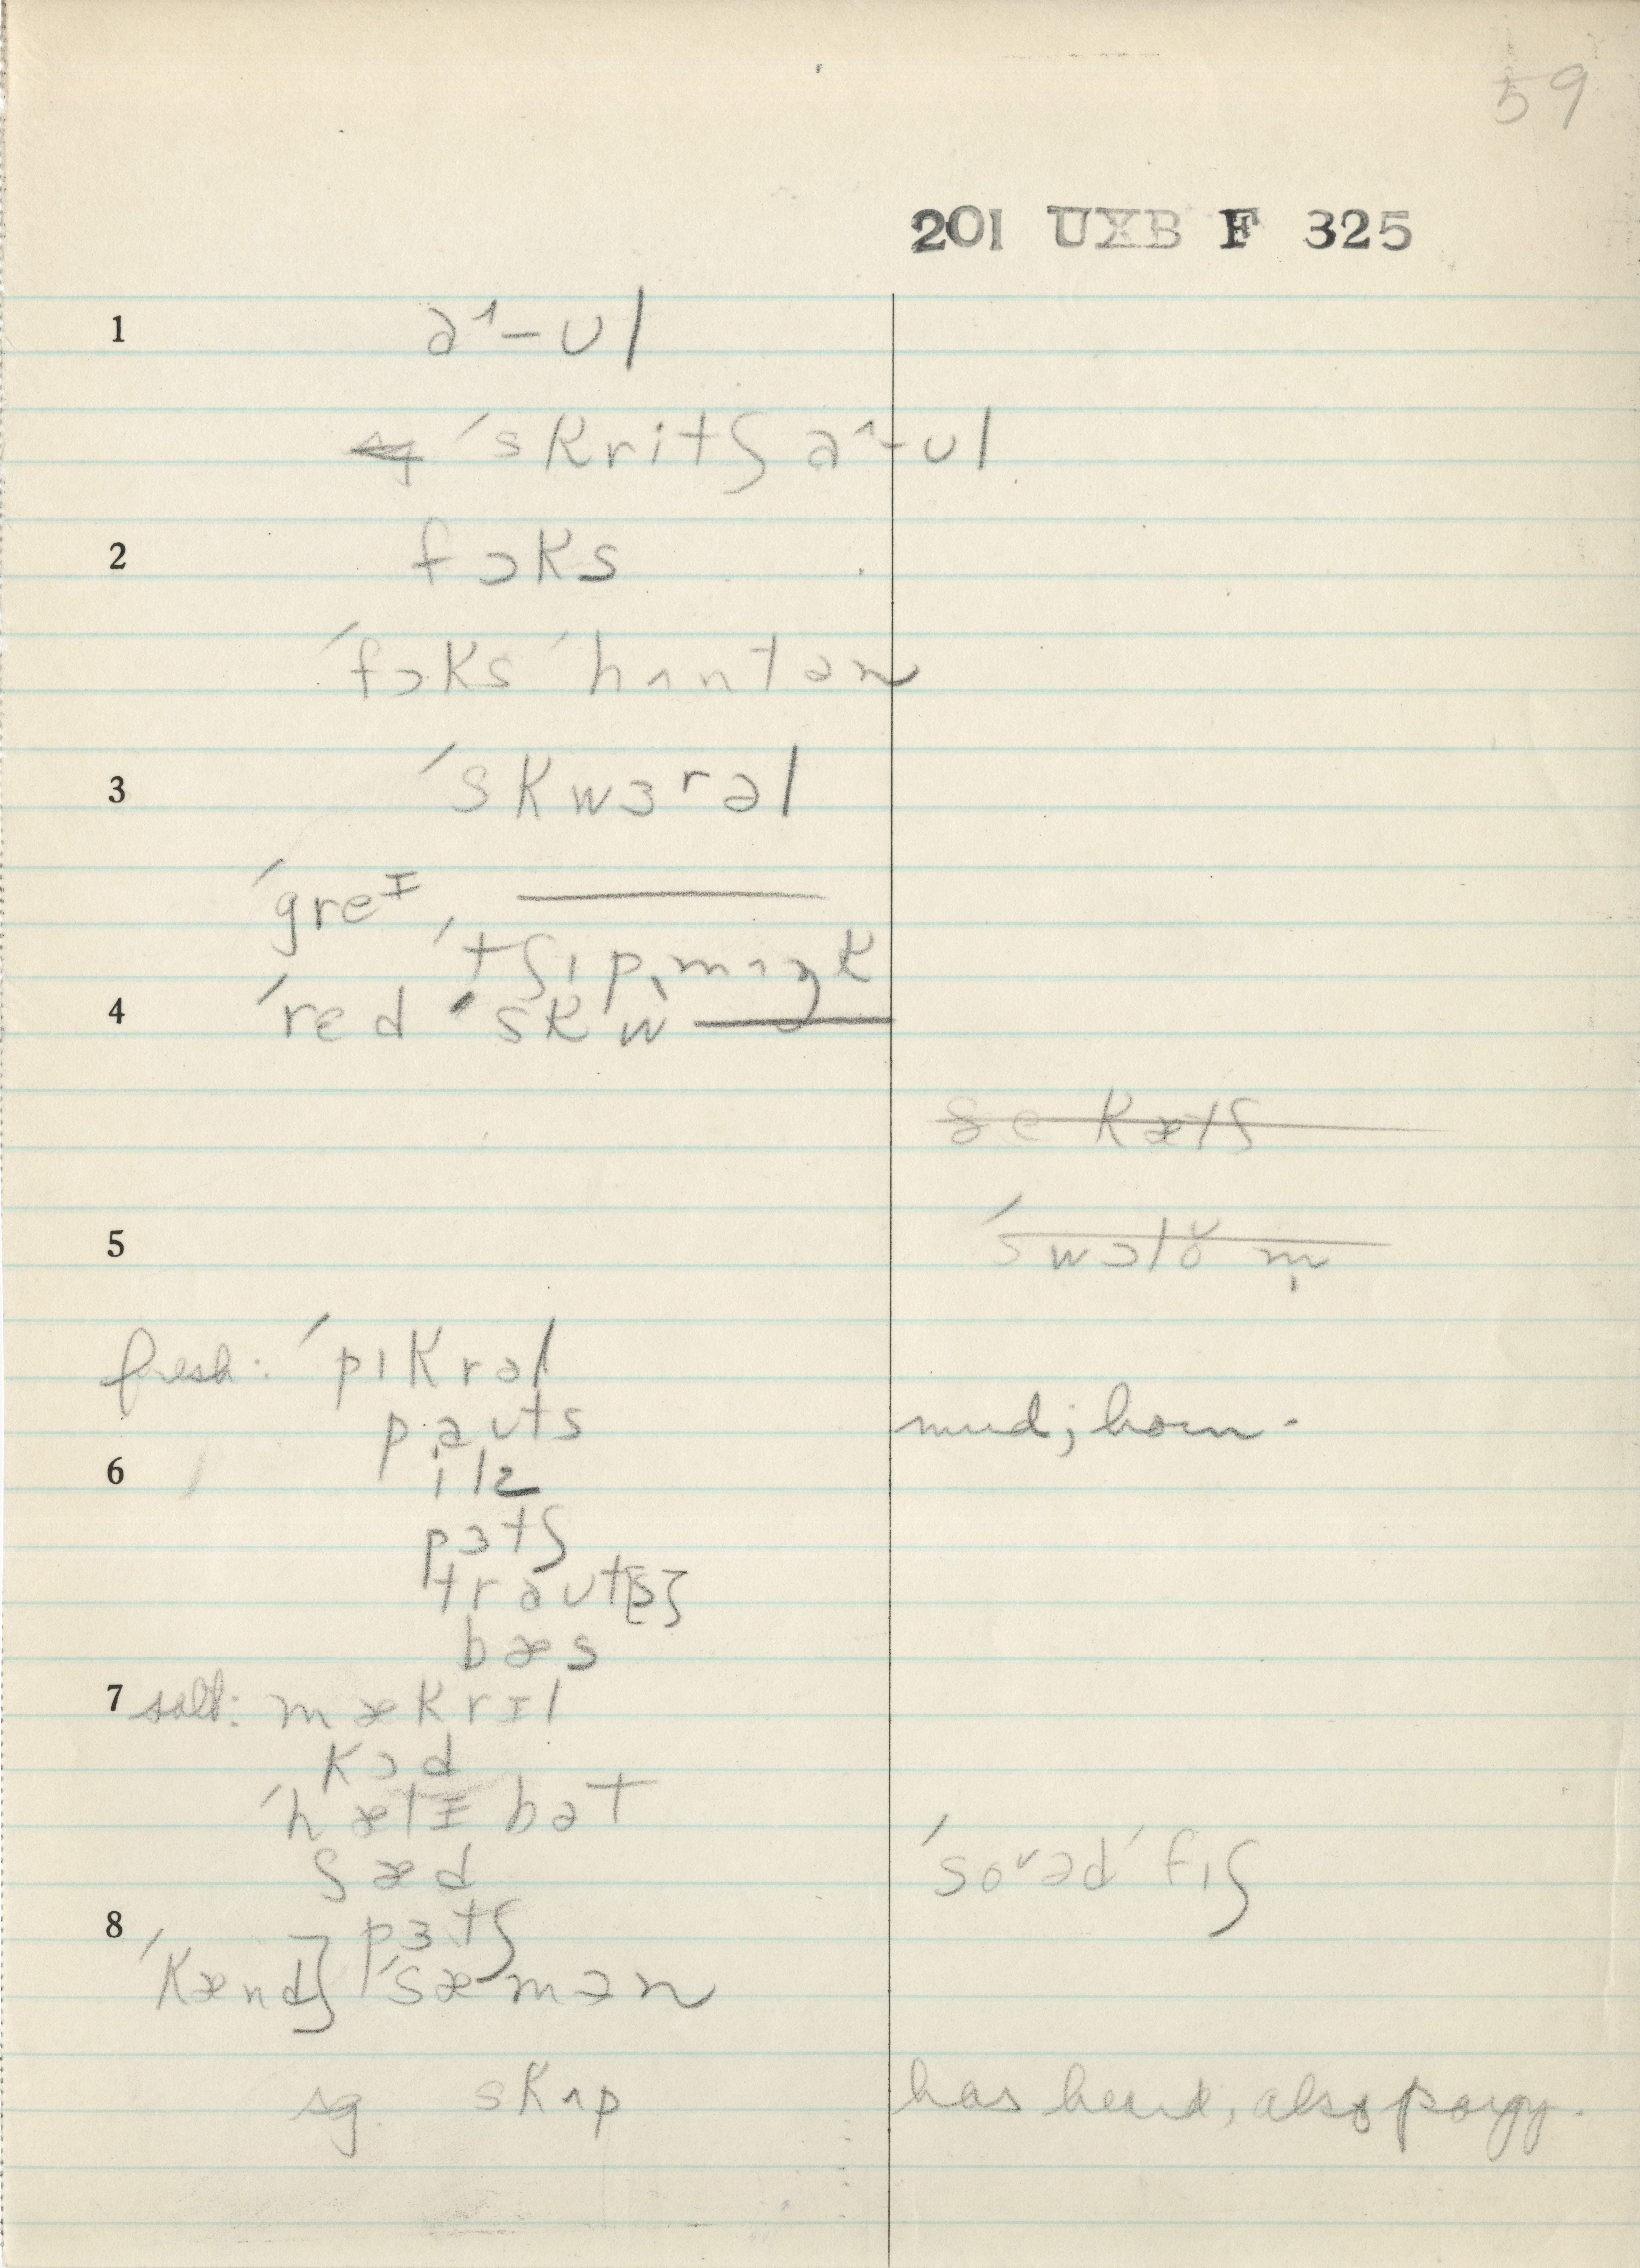 59
201 UXB F 325
1 aᶺ-ʊl
~~sg~~ ˈskritʃ aᶺ-ʊl
2 fɔks
ˈfɔks ˈhʌntən
3 ˈskwɜʳəl
ˈgreᴵ, ———
ˈtʃɪpˌmʌŋk
4 ˈred ˈskw ———
~~se kætʃ~~
5 ~~ˈswɔlŏ m̩~~
fresh: ˈpɪkrəl
paʊts mud; horn-
6 ilz
pɜtʃ
traʊt[s]
bæs
7 salt: mækrɪl
kɔd
ˈhælɪbət
ʃæd ˈsoᵛəd ˈfɪʃ
8 pɜtʃ
ˈkænd] ˈsæmən
sg. skʌp has heard, also porgy.